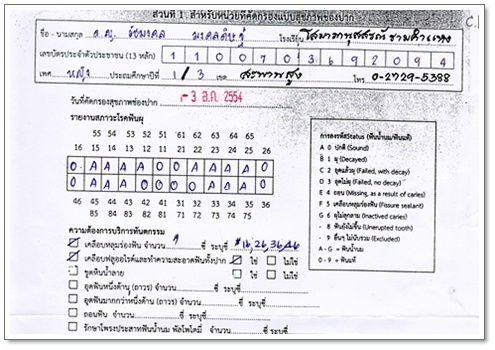 ส่วนที่ 1 สำหรับหน่วยที่คัดกรองแบบสุขภาพช่องปาก
ชื่อ - นามสกุล ด.ญ. มงคลดิษฐ์ โรงเรียน
เลขบัตรประจำตัวประชาชน (13 หลัก) 1 1 0 0 7 0 3 6 9 2 0 9 4
เพศ หญิง ประถมศึกษาปีที่ 1/3 เขต สะพานสูง โทร 0-2729-5388
วันที่คัดกรองสุขภาพช่องปาก - 3 ส.ค. 2554
รายงานสภาวะโรคฟันผุ
55 54 53 52 51 61 62 63 64 65
16 15 14 13 12 11 21 22 23 24 25 26
0 A A A A 0 0 A A A A 0
0 A A A 0 0 0 0 A A A 0
46 45 44 43 42 41 31 32 33 34 35 36
85 84 83 82 81 71 72 73 74 75
การลงรหัสStatus (ฟันน้ำนม/ฟันแท้)
A 0 ปกติ (Sound)
B 1 ผุ (Decayed)
C 2 อุดแล้วผุ (Failed, with decay)
D 3 อุดไม่ผุ (Failed, no decay)
E 4 ถอน (Missing, as a result of caries)
F 5 เคลือบหลุมร่องฟัน (Fissure sealant)
G 6 ผุไม่ลุกลาม (Inactived caries)
- 8 ฟันยังไม่ขึ้น (Unerupted tooth)
- 9 อื่นๆ ไม่นับรวม (Excluded)
A - G = ฟันน้ำนม
0 - 9 = ฟันแท้
ความต้องการบริการทันตกรรม
เคลือบหลุมร่องฟัน จำนวน ซี่ ระบุซี่ 16,26,36,46
เคลือบฟลูออไรด์และทำความสะอาดฟันทั้งปาก ใช่ ไม่ใช่
ขูดหินน้ำลาย ใช่ ไม่ใช่
อุดฟันหนึ่งด้าน (ถาวร) จำนวน ซี่ ระบุซี่
อุดฟันมากกว่าหนึ่งด้าน (ถาวร) จำนวน ซี่ ระบุซี่
ถอนฟัน จำนวน ซี่ ระบุซี่
รักษาโพรงประสาทฟันน้ำนม พัลโพโตมี่ จำนวน ซี่ ระบุซี่